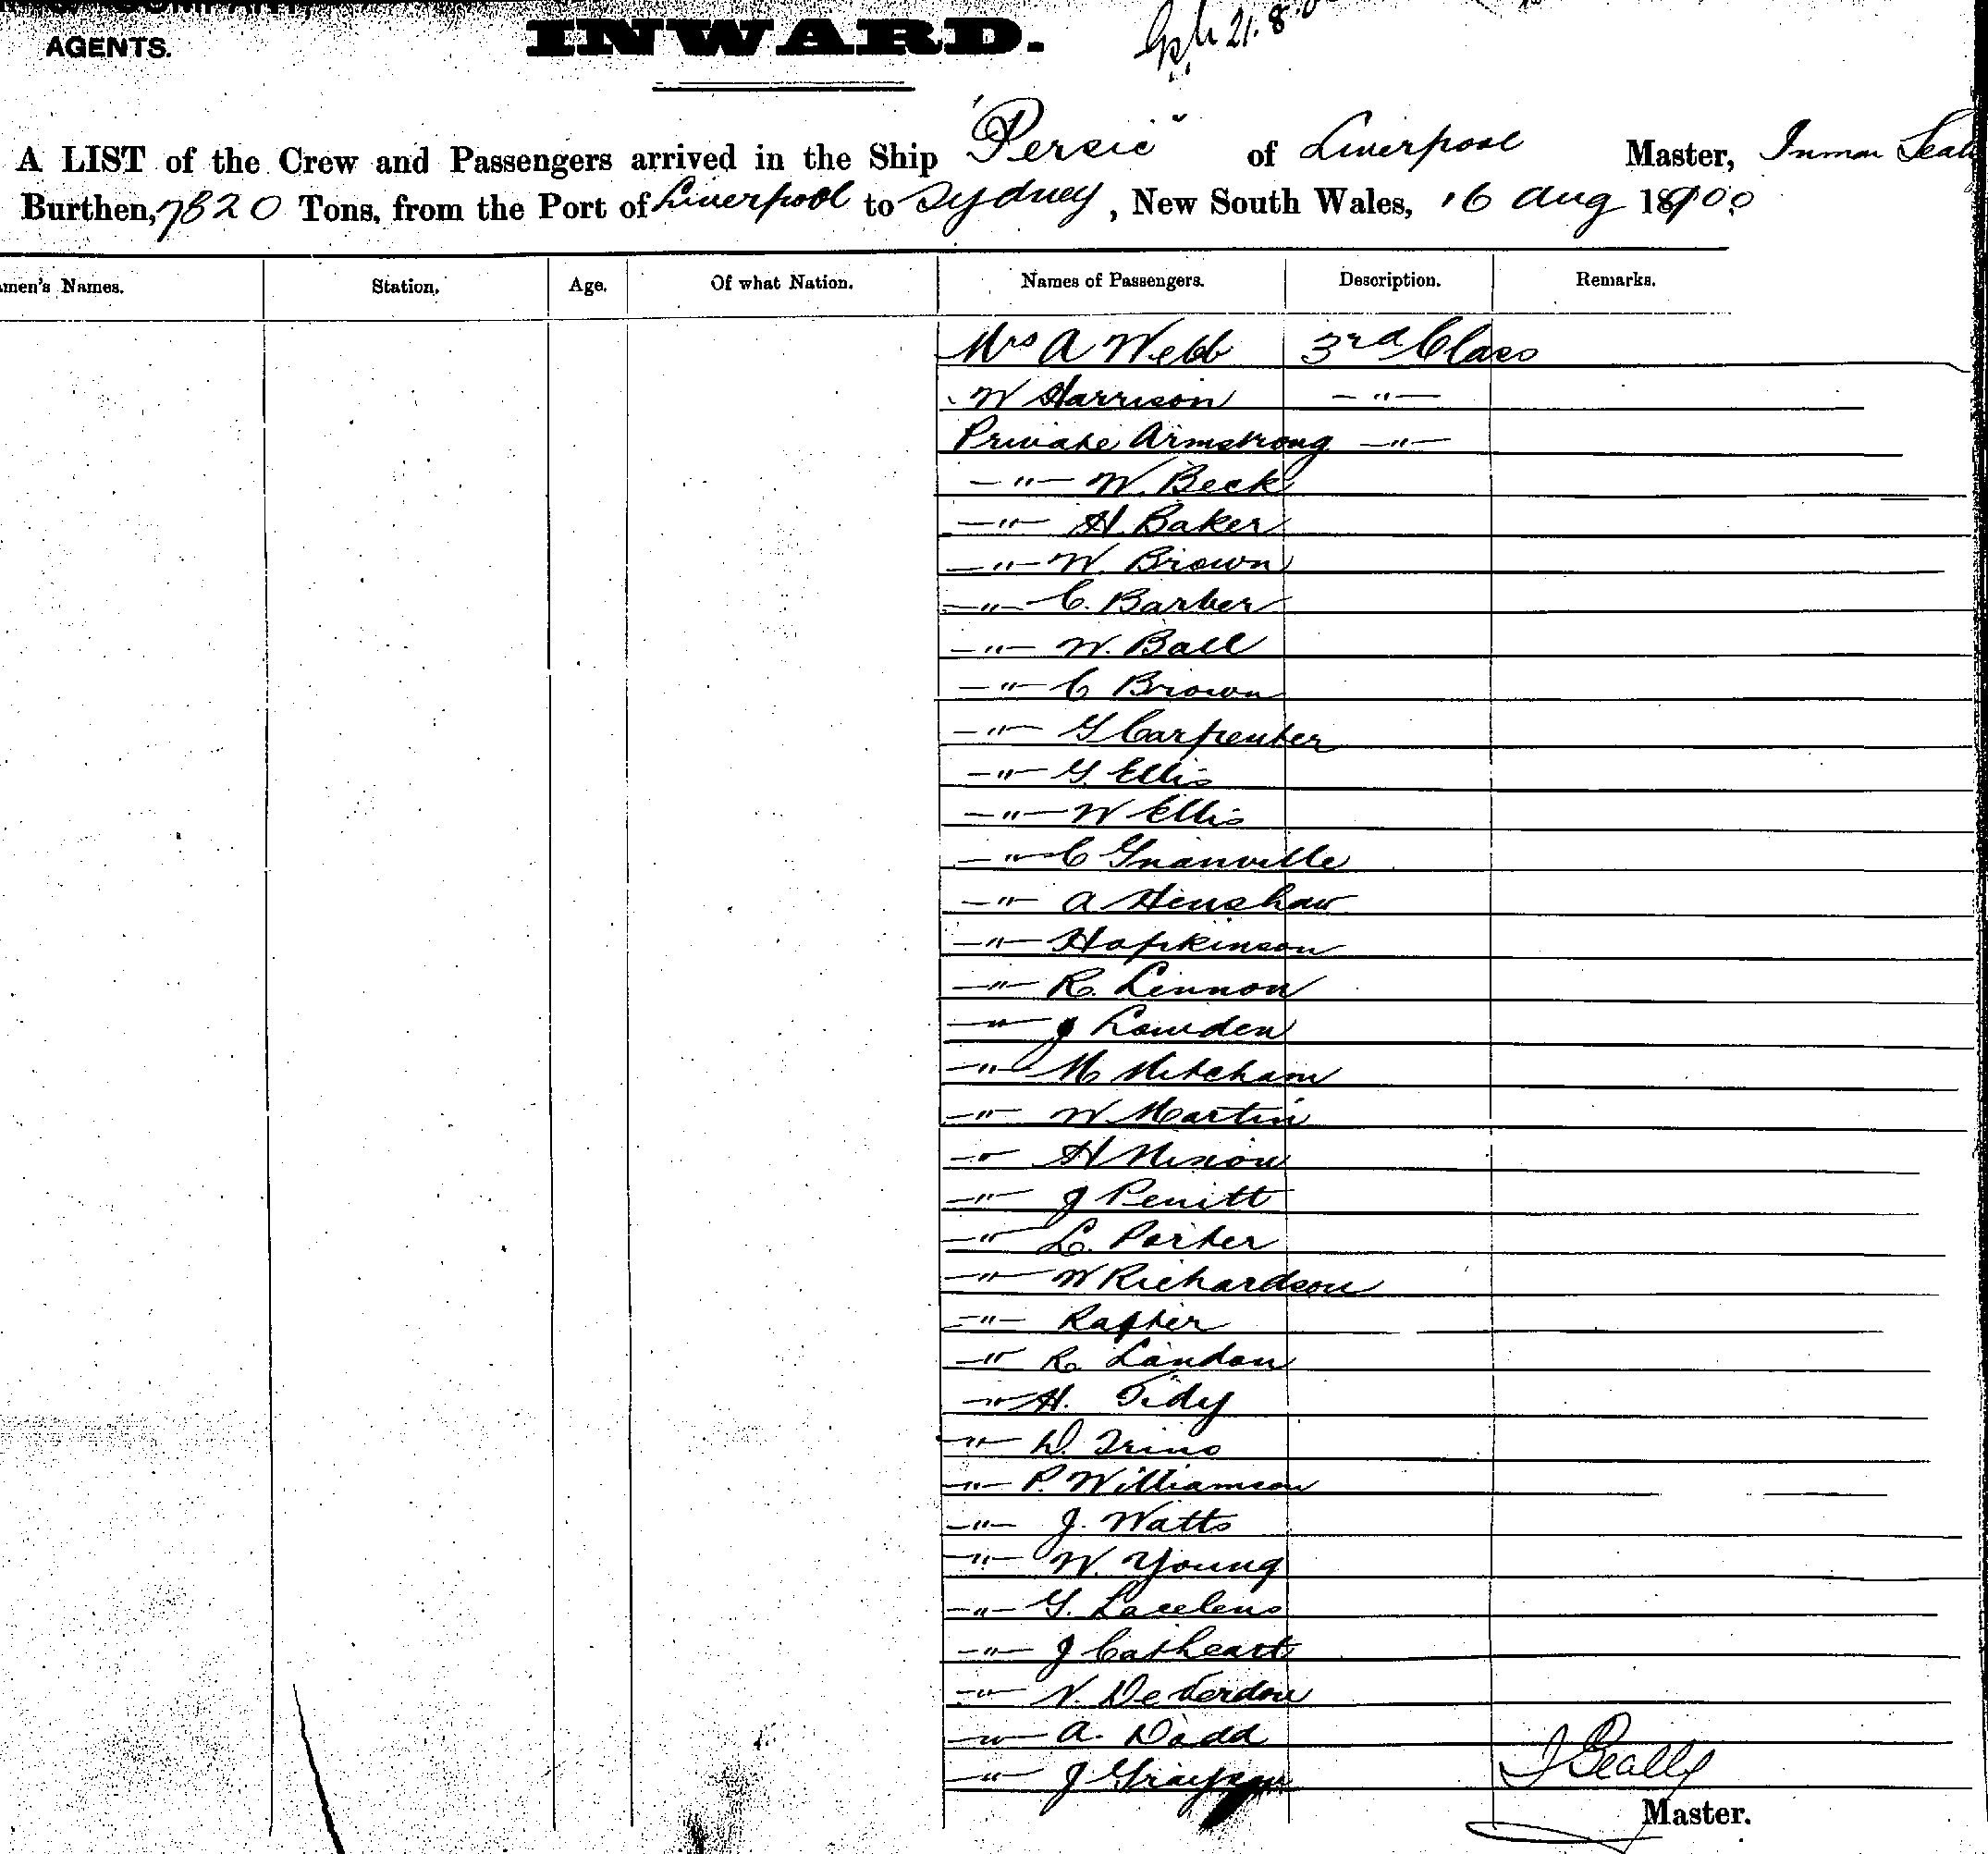 AGENTS.
INWARD.
21.8.0
A LIST of the Crew and Passengers arrived in the Ship "Persic" of Liverpool Master, Inman Seal
Burthen, 7820 Tons, from the Port of Liverpool to Sydney, New South Wales, 16 Aug 1900
men's Names. Station. Age. Of what Nation. Names of Passengers. Description. Remarks.
Mrs A Webb 3rd Class
W Harrison —"—
Private Armstrong —"—
—"— W. Beck
—"— H. Baker
—"— W. Brown
—"— C. Barber
—"— W. Ball
—"— C Brown
—"— G Carpenter
—"— G. Ellis
—"— W Ellis
—"— C Granville
—"— A Henshaw
—"— Hopkinson
—"— R. Lennon
—"— J Lowden
—"— M Mitcham
—"— W Martin
—"— H Nixon
—"— J Penitt
—"— L. Porter
—"— W Richardson
—"— Rafter
—"— R. Landon
—"— H. Tidy
—"— D. Trins
—"— P. Williamson
—"— J. Watts
—"— W. Young
—"— G.
—"— J Cathcart
—"— N. De Verdon
—"— A. Dodd
—"— J Grayson
J Seally
Master.